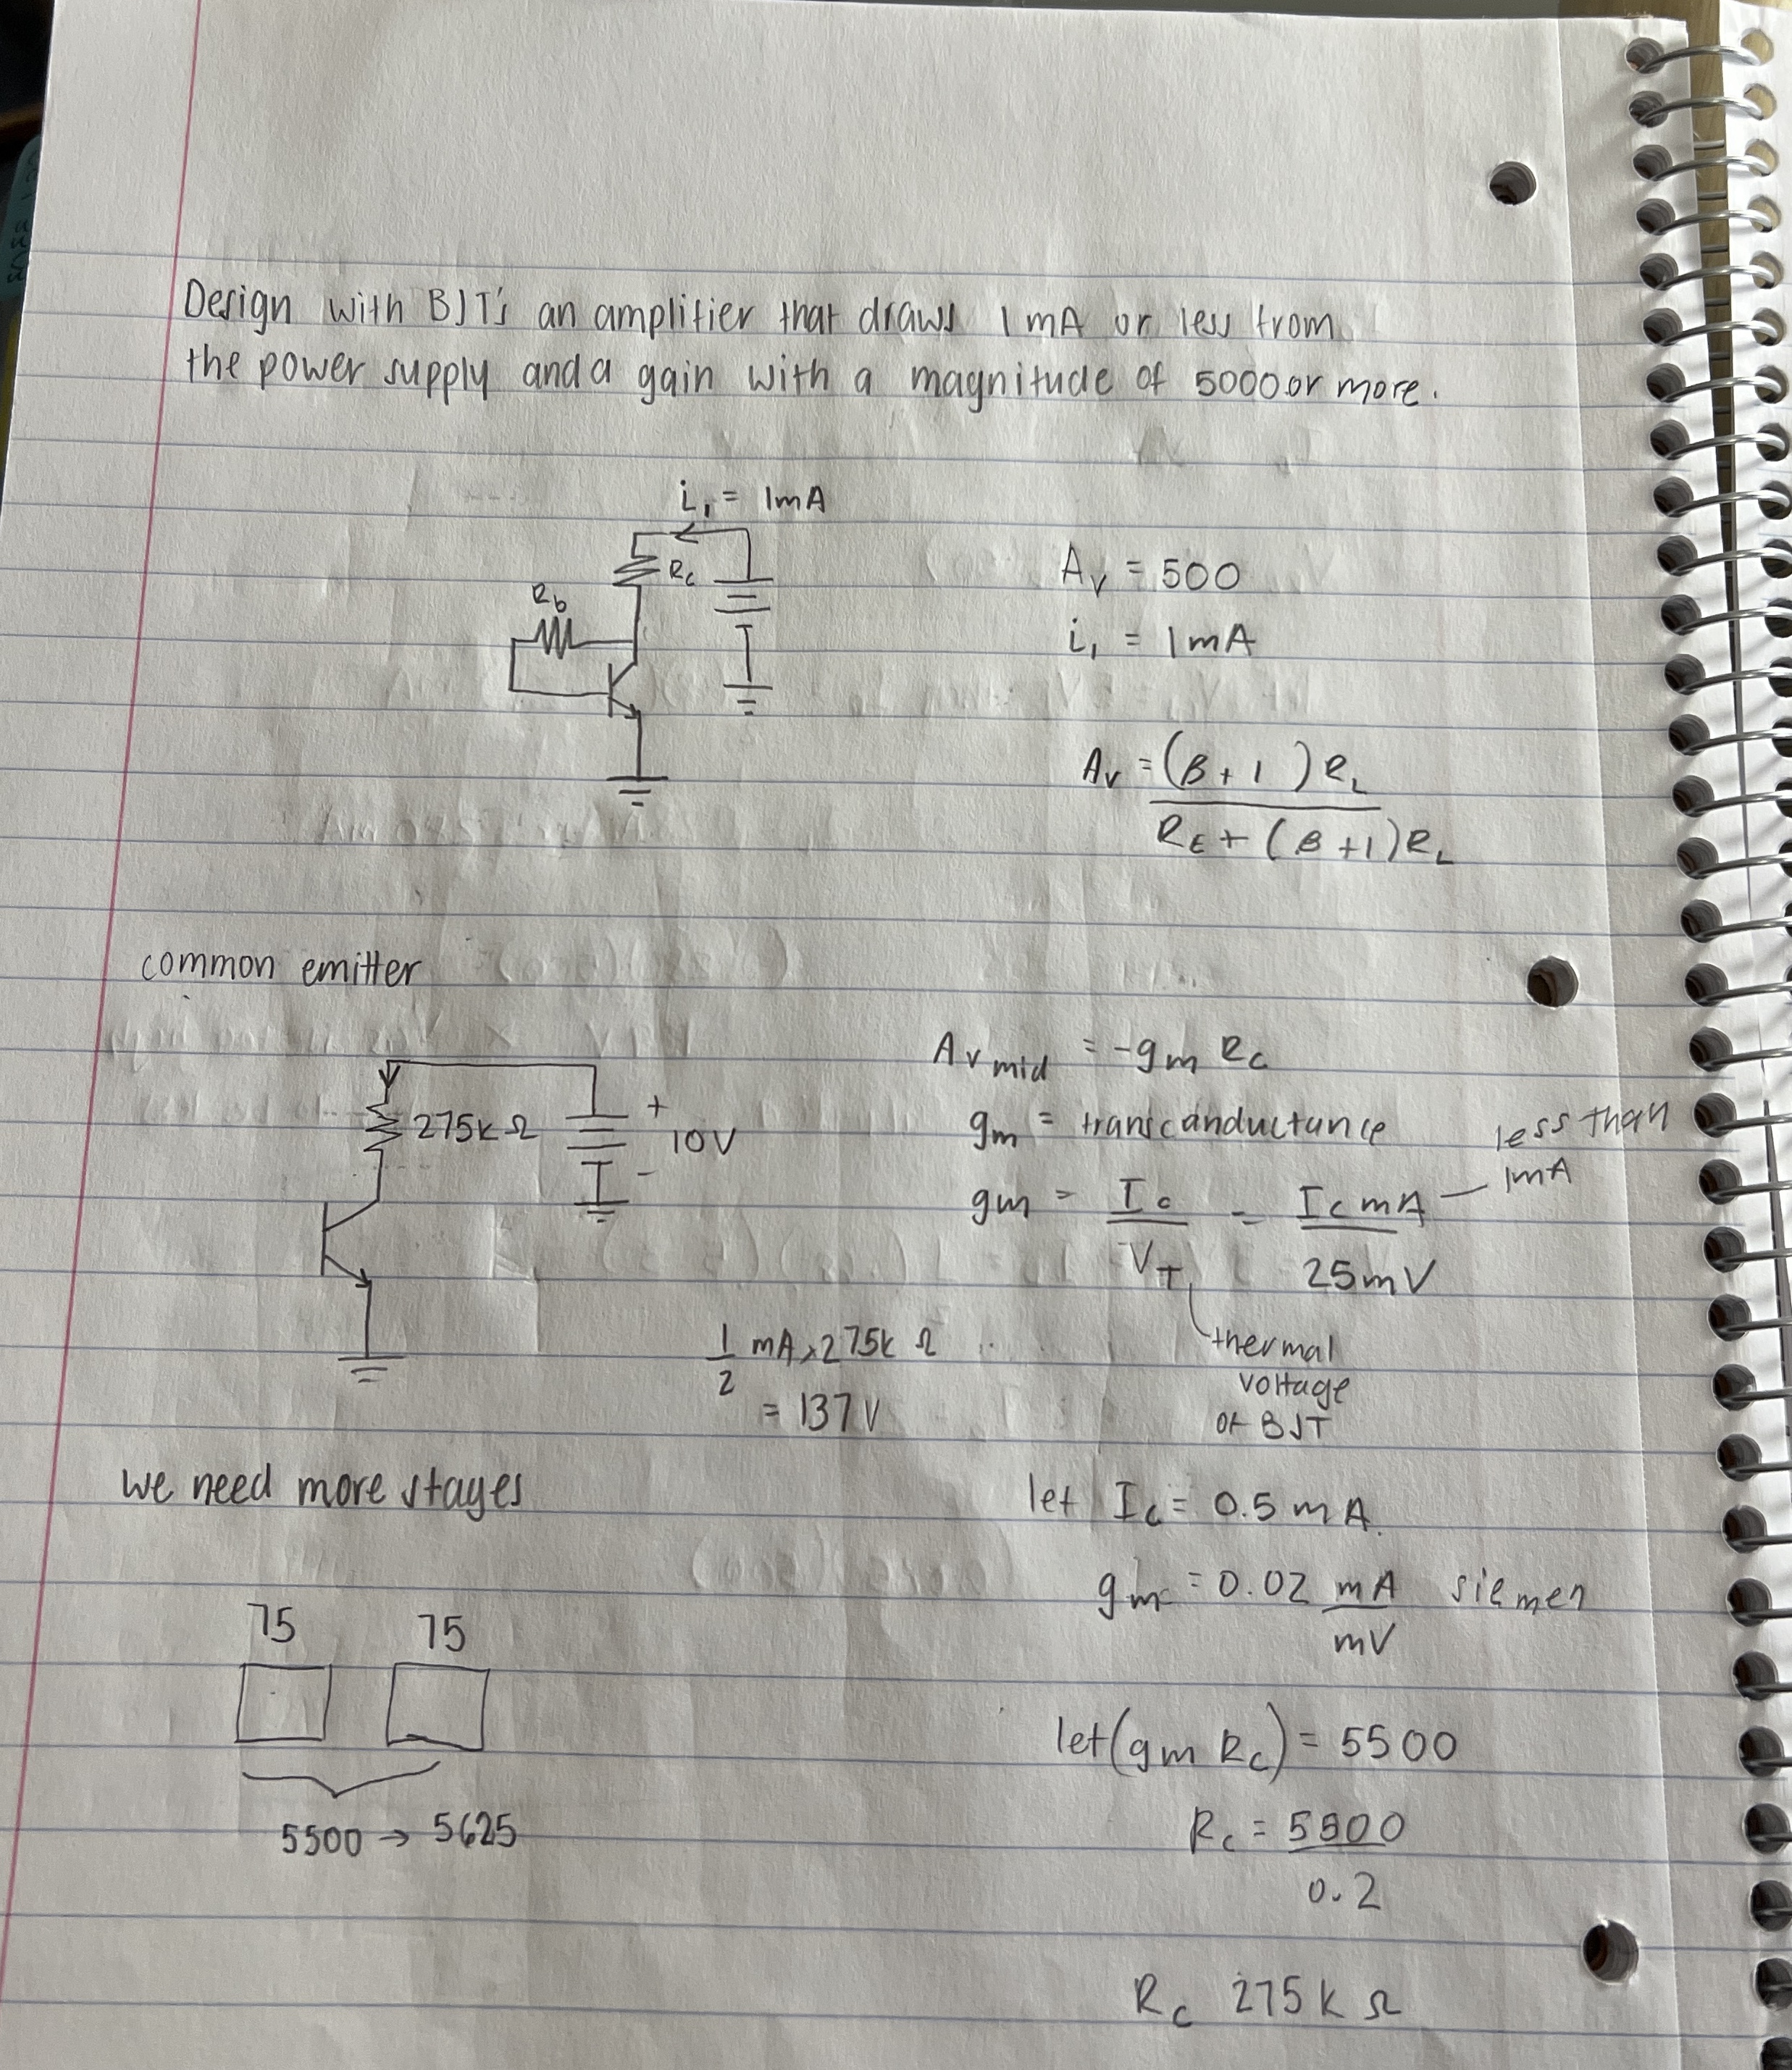 Design with BJT's an amplifier that draws 1mA or less from
the power supply and a gain with a magnitude of 5000 or more.
i₁ = 1mA
Rc
Rb
Av = 500
i₁ = 1mA
Av = (B+1)RL
RE + (B+1)RL
common emitter
275kΩ
+
10V
-
1/2 mA × 275k Ω
= 137V
Av mid = -gm Rc
gm = transcanductance
gm = Ic/VT = Ic mA/25mV
less than
1mA
thermal
voltage
of BJT
we need more stages
75 75
5500 → 5625
let Ic = 0.5 mA.
gm = 0.02 mA/mV siemen
let (gm Rc) = 5500
Rc = 5500
0.2
Rc 275k Ω